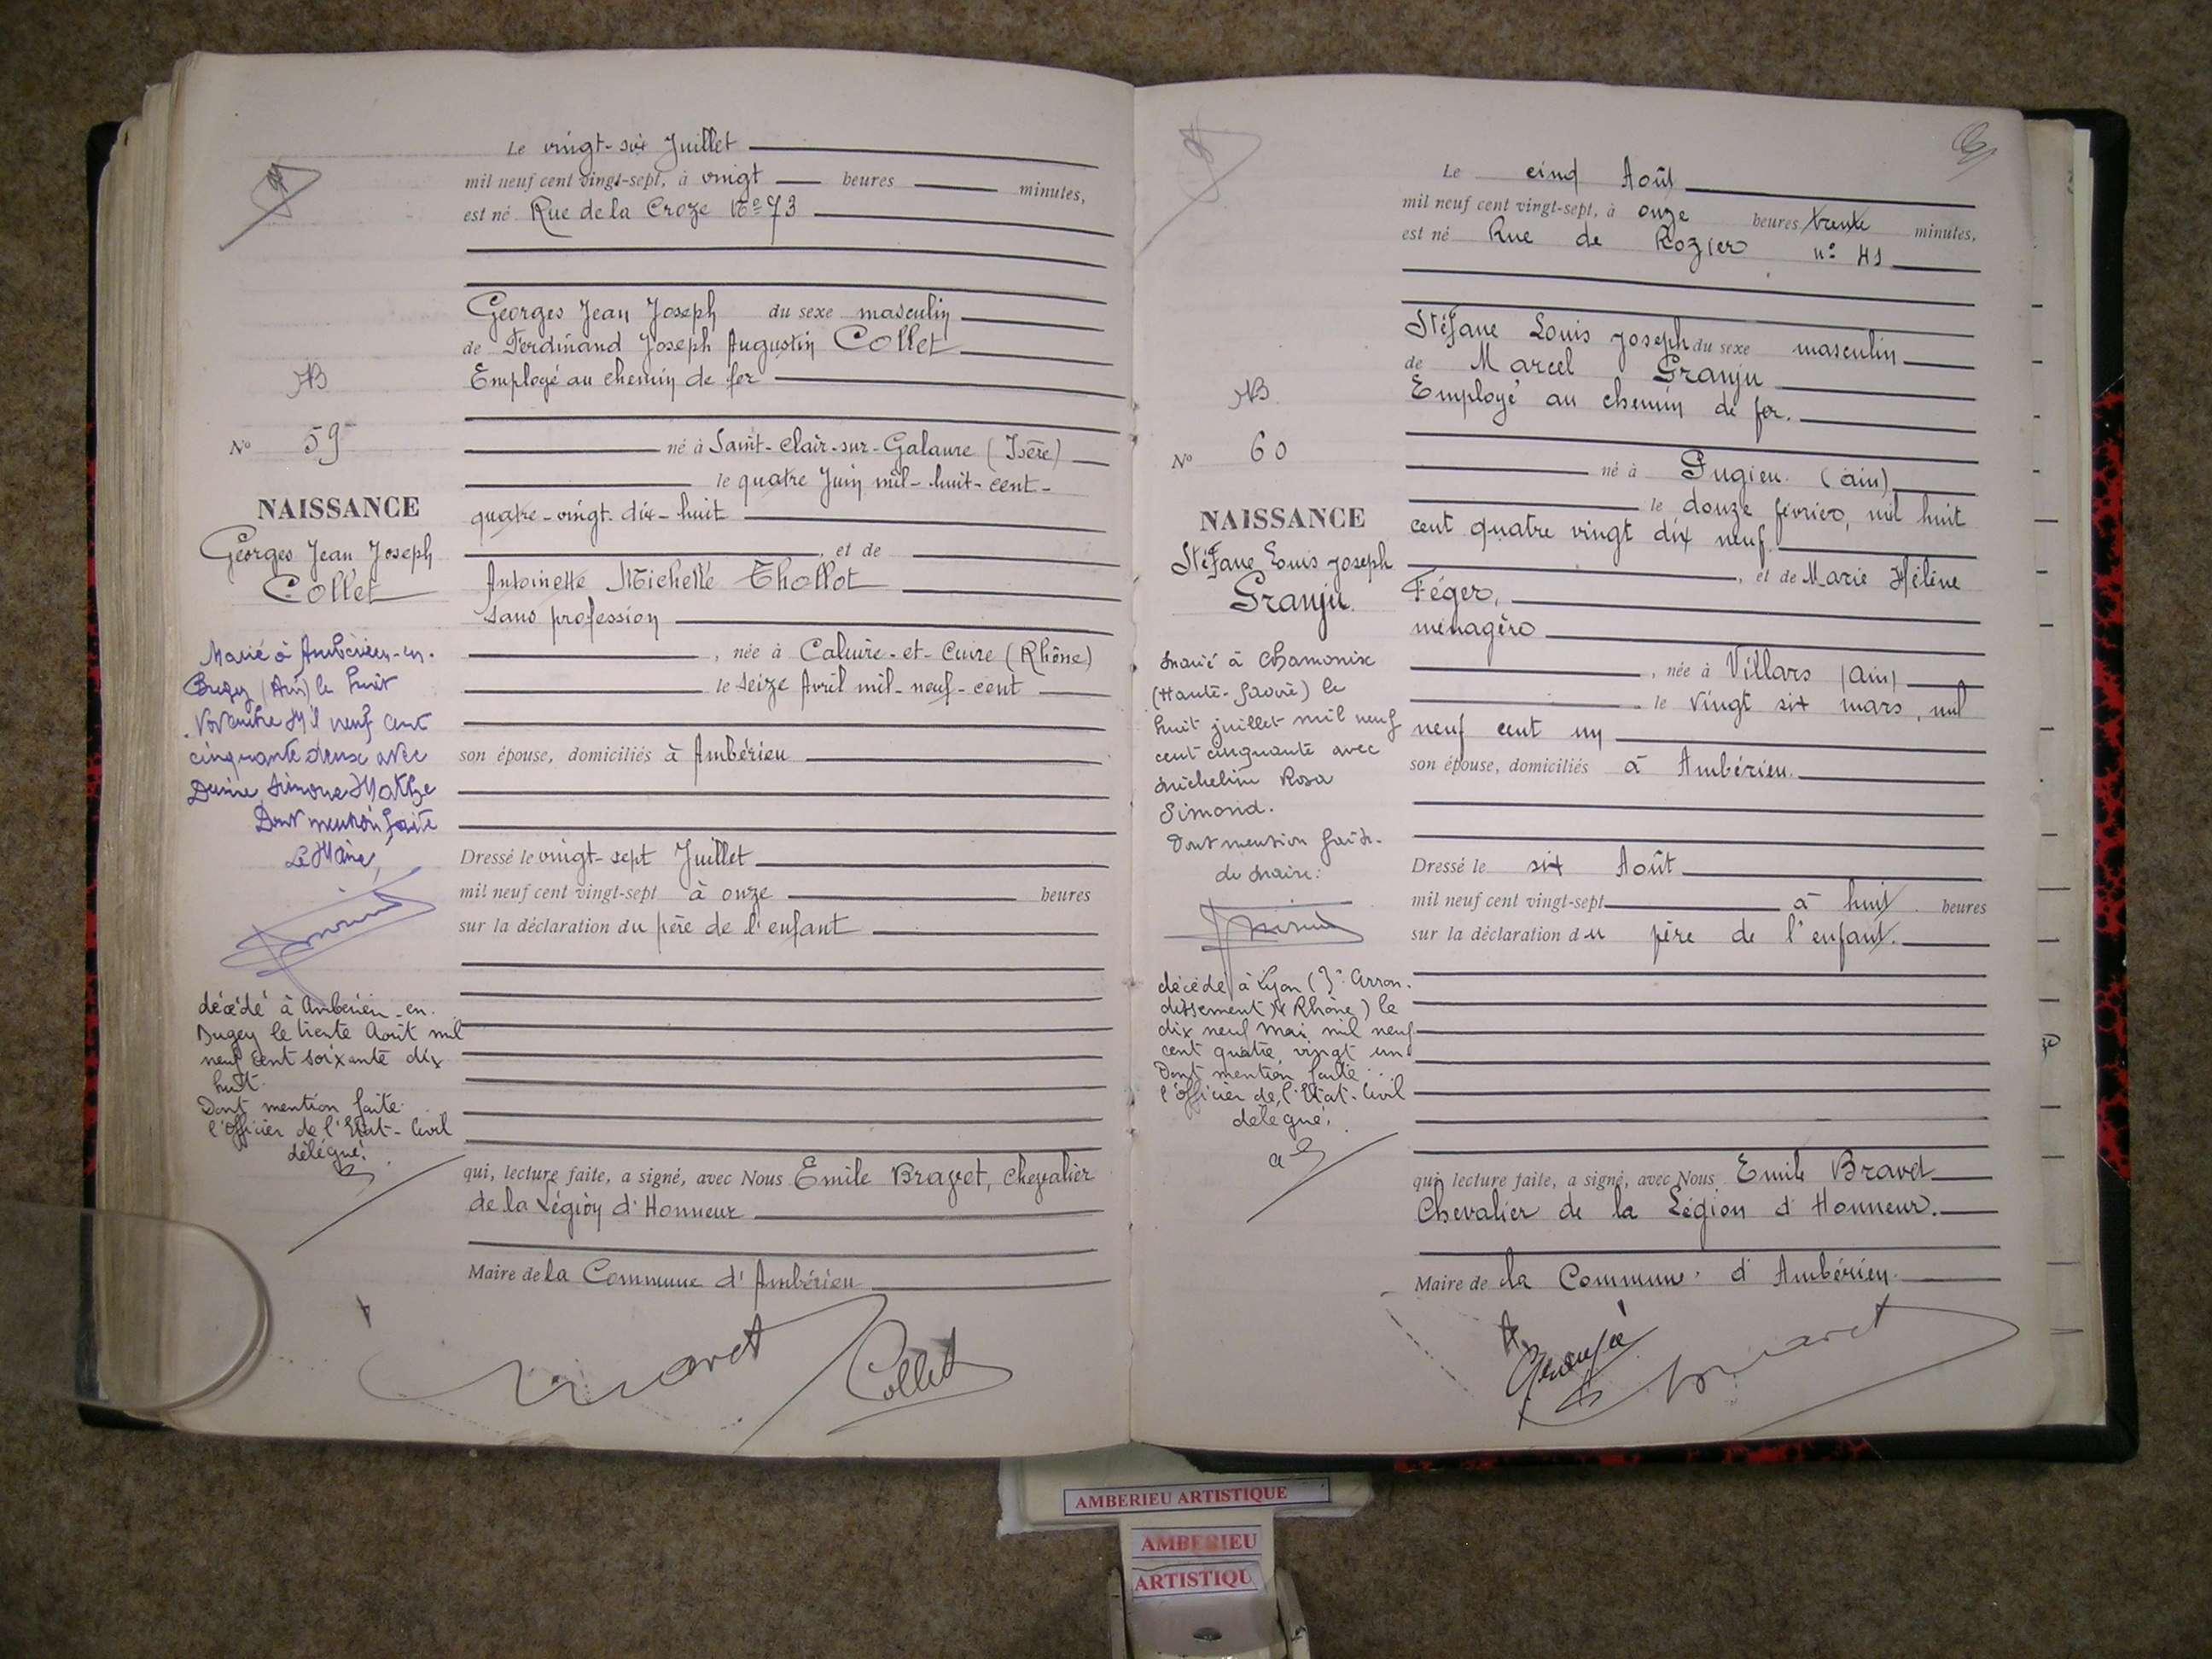 Le vingt-six Juillet
mil neuf cent vingt-sept, à vingt heures minutes,
est né Rue de la Croze No 73
Georges Jean Joseph du sexe masculin
de Ferdinand Joseph Augustin Collet
Employé au chemin de fer
né à Saint-Clair-sur-Galaure (Isère)
le quatre Juin mil-huit-cent-
quatre-vingt-dix-huit
, et de
Antoinette Michelle Thollot
sans profession
, née à Caluire-et-Cuire (Rhône)
le seize Avril mil-neuf-cent
son épouse, domiciliés à Ambérieu
Dressé le vingt-sept Juillet
mil neuf cent vingt-sept à onze heures
sur la déclaration du père de l'enfant
qui, lecture faite, a signé, avec Nous Emile Bravet, Chevalier
de la Légion d'Honneur
Maire de la Commune d'Ambérieu
Bravet
Collet
AB
No 59
NAISSANCE
Georges Jean Joseph
Collet
Marié à Ambérieu-en-
Bugey (Ain) le huit
Novembre Mil neuf cent
cinquante deux avec
Simone
Dont mention faite
Le Maire,
décédé à Ambérieu-en-
Bugey le trente Août mil
neuf cent soixante dix
huit.
Dont mention faite
l'Officier de l'Etat-Civil
délégué.
Le cinq Août
mil neuf cent vingt-sept, à onze heures trente minutes,
est né Rue de Rozier no 41
Stéfane Louis Joseph du sexe masculin
de Marcel Granju
Employé au chemin de fer.
né à Pugieu (ain)
le douze février, mil huit
cent quatre vingt dix neuf.
, et de Marie Hélène
Féger,
ménagère
, née à Villars (ain)
le vingt six mars, mil
neuf cent un
son épouse, domiciliés à Ambérieu.
Dressé le six Août
mil neuf cent vingt-sept à huit heures
sur la déclaration du père de l'enfant.
qui, lecture faite, a signé, avec Nous Emile Bravet
Chevalier de la Légion d'Honneur.
Maire de la Commune d'Ambérieu.
Granju
Bravet
AB
No 60
NAISSANCE
Stéfane Louis Joseph
Granju.
Marié à Chamonix
(Haute-Savoie) le
huit juillet mil neuf
cent cinquante avec
Micheline Rosa
Simond.
Dont mention faite.
Le Maire:
décédé à Lyon (3e Arron-
dissement) (Rhône) le
dix neuf mai mil neuf
cent quatre vingt un
Dont mention faite
l'Officier de l'Etat-Civil
délégué.
AMBERIEU ARTISTIQUE
AMBERIEU
ARTISTIQU